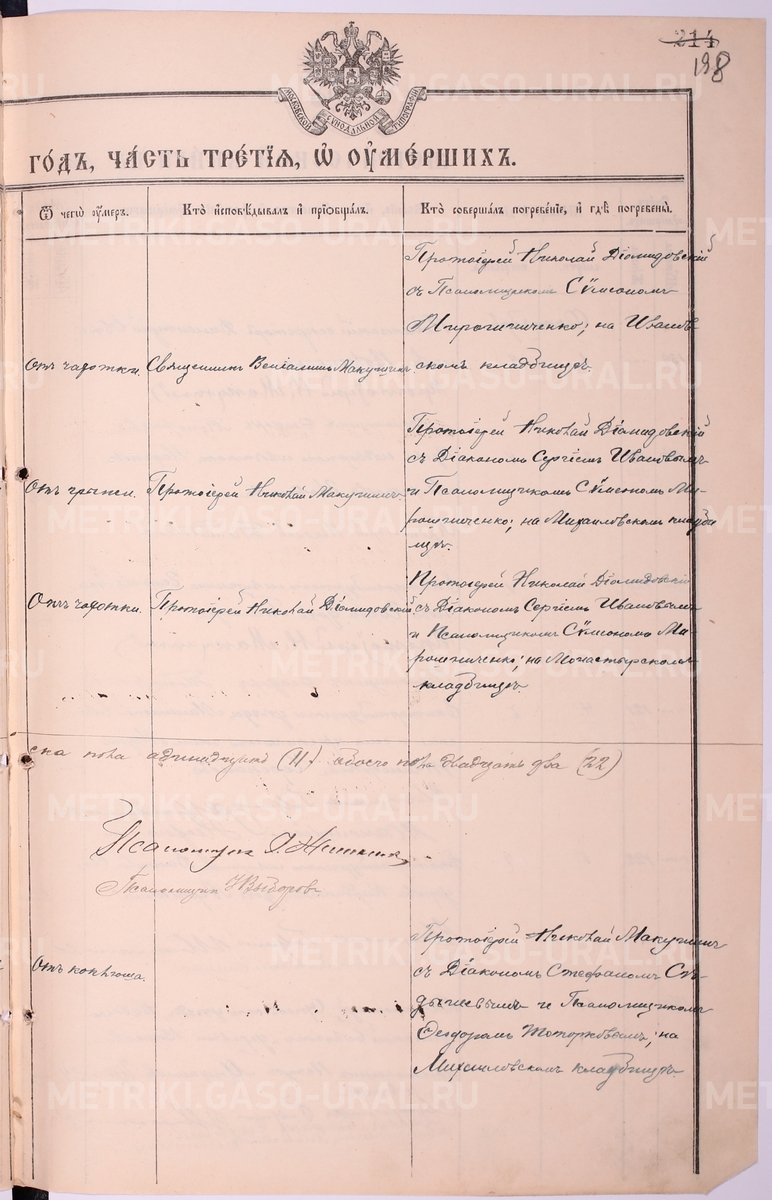 214
198
МОСКОВСКОЙ СѴНОДАЛЬНОЙ ТИПОГРАФІИ
ГОДЪ, ЧАСТЬ ТРЕТІЯ, Ѡ ОУМЕРШИХЪ.
Ѿ чегѡ оумеръ.
Кто исповѣдывалъ и пріобщалъ.
Кто совершалъ погребеніе, и гдѣ погребены.
Отъ чахотки.
Священникъ Веніаминъ Макушинъ
Протоіерей Николай Діомидовскій
съ Псаломщикомъ Сѵмеономъ
Мирошниченко; на Иванов
скомъ кладбищѣ.
Отъ грыжи.
Протоіерей Николай Макушинъ
Протоіерей Николай Діомидовскій
съ Діакономъ Сергіемъ Ивановымъ
и Псаломщикомъ Сѵмеономъ Ми-
рошниченко; на Михайловскомъ кладби
щѣ.
Отъ чахотки.
Протоіерей Николай Діомидовскій
Протоіерей Николай Діомидовскій
съ Діакономъ Сергіемъ Ивановымъ
и Псаломщикомъ Сѵмеономъ Ми-
рошниченко; на Монастырскомъ
кладбищѣ.
пола адинадцать (11) обоего пола двадцать два (22)
Псаломщикъ
Псаломщикъ
Отъ коклюша.
Протоіерей Николай Макушинъ
съ Діакономъ Стефаномъ
и Псаломщикомъ
Ѳеодоромъ на
Михайловскомъ кладбищѣ.
METRIKI.GASO-URAL.RU